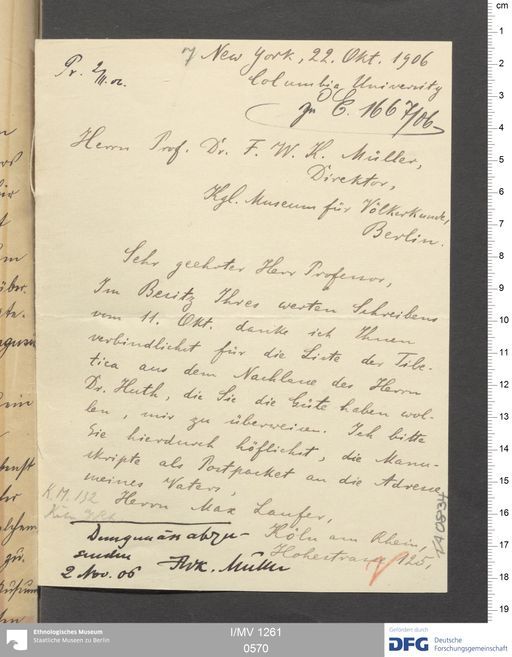 Pr. 2/11. 06.
New York, 22. Okt. 1906
Columbia University
zu E. 1667/06
Herrn Prof. Dr. F. W. K. Müller,
Direktor,
Kgl. Museum für Völkerkunde,
Berlin.
Sehr geehrter Herr Professor,
Im Besitz Ihres werten Schreibens
vom 11. Okt. danke ich Ihnen
verbindlichst für die Liste der Tibe-
tica aus dem Nachlasse des Herrn
Dr. Huth, die Sie die Güte haben wol-
len, mir zu überweisen. Ich bitte
Sie hierdurch höflichst, die Manu-
skripte als Postpacket an die Adresse
meines Vaters,
Herrn Max Laufer,
Köln am Rhein,
Hohestrasse 125,
K. M. 132
Demgemäss abzu-
senden
2 Nov. 06 FWK. Müller
IA 0834
cm
1
2
3
4
5
6
7
8
9
10
11
12
13
14
15
16
17
18
19
Ethnologisches Museum
Staatliche Museen zu Berlin
I/MV 1261
0570
Gefördert durch
DFG Deutsche
Forschungsgemeinschaft